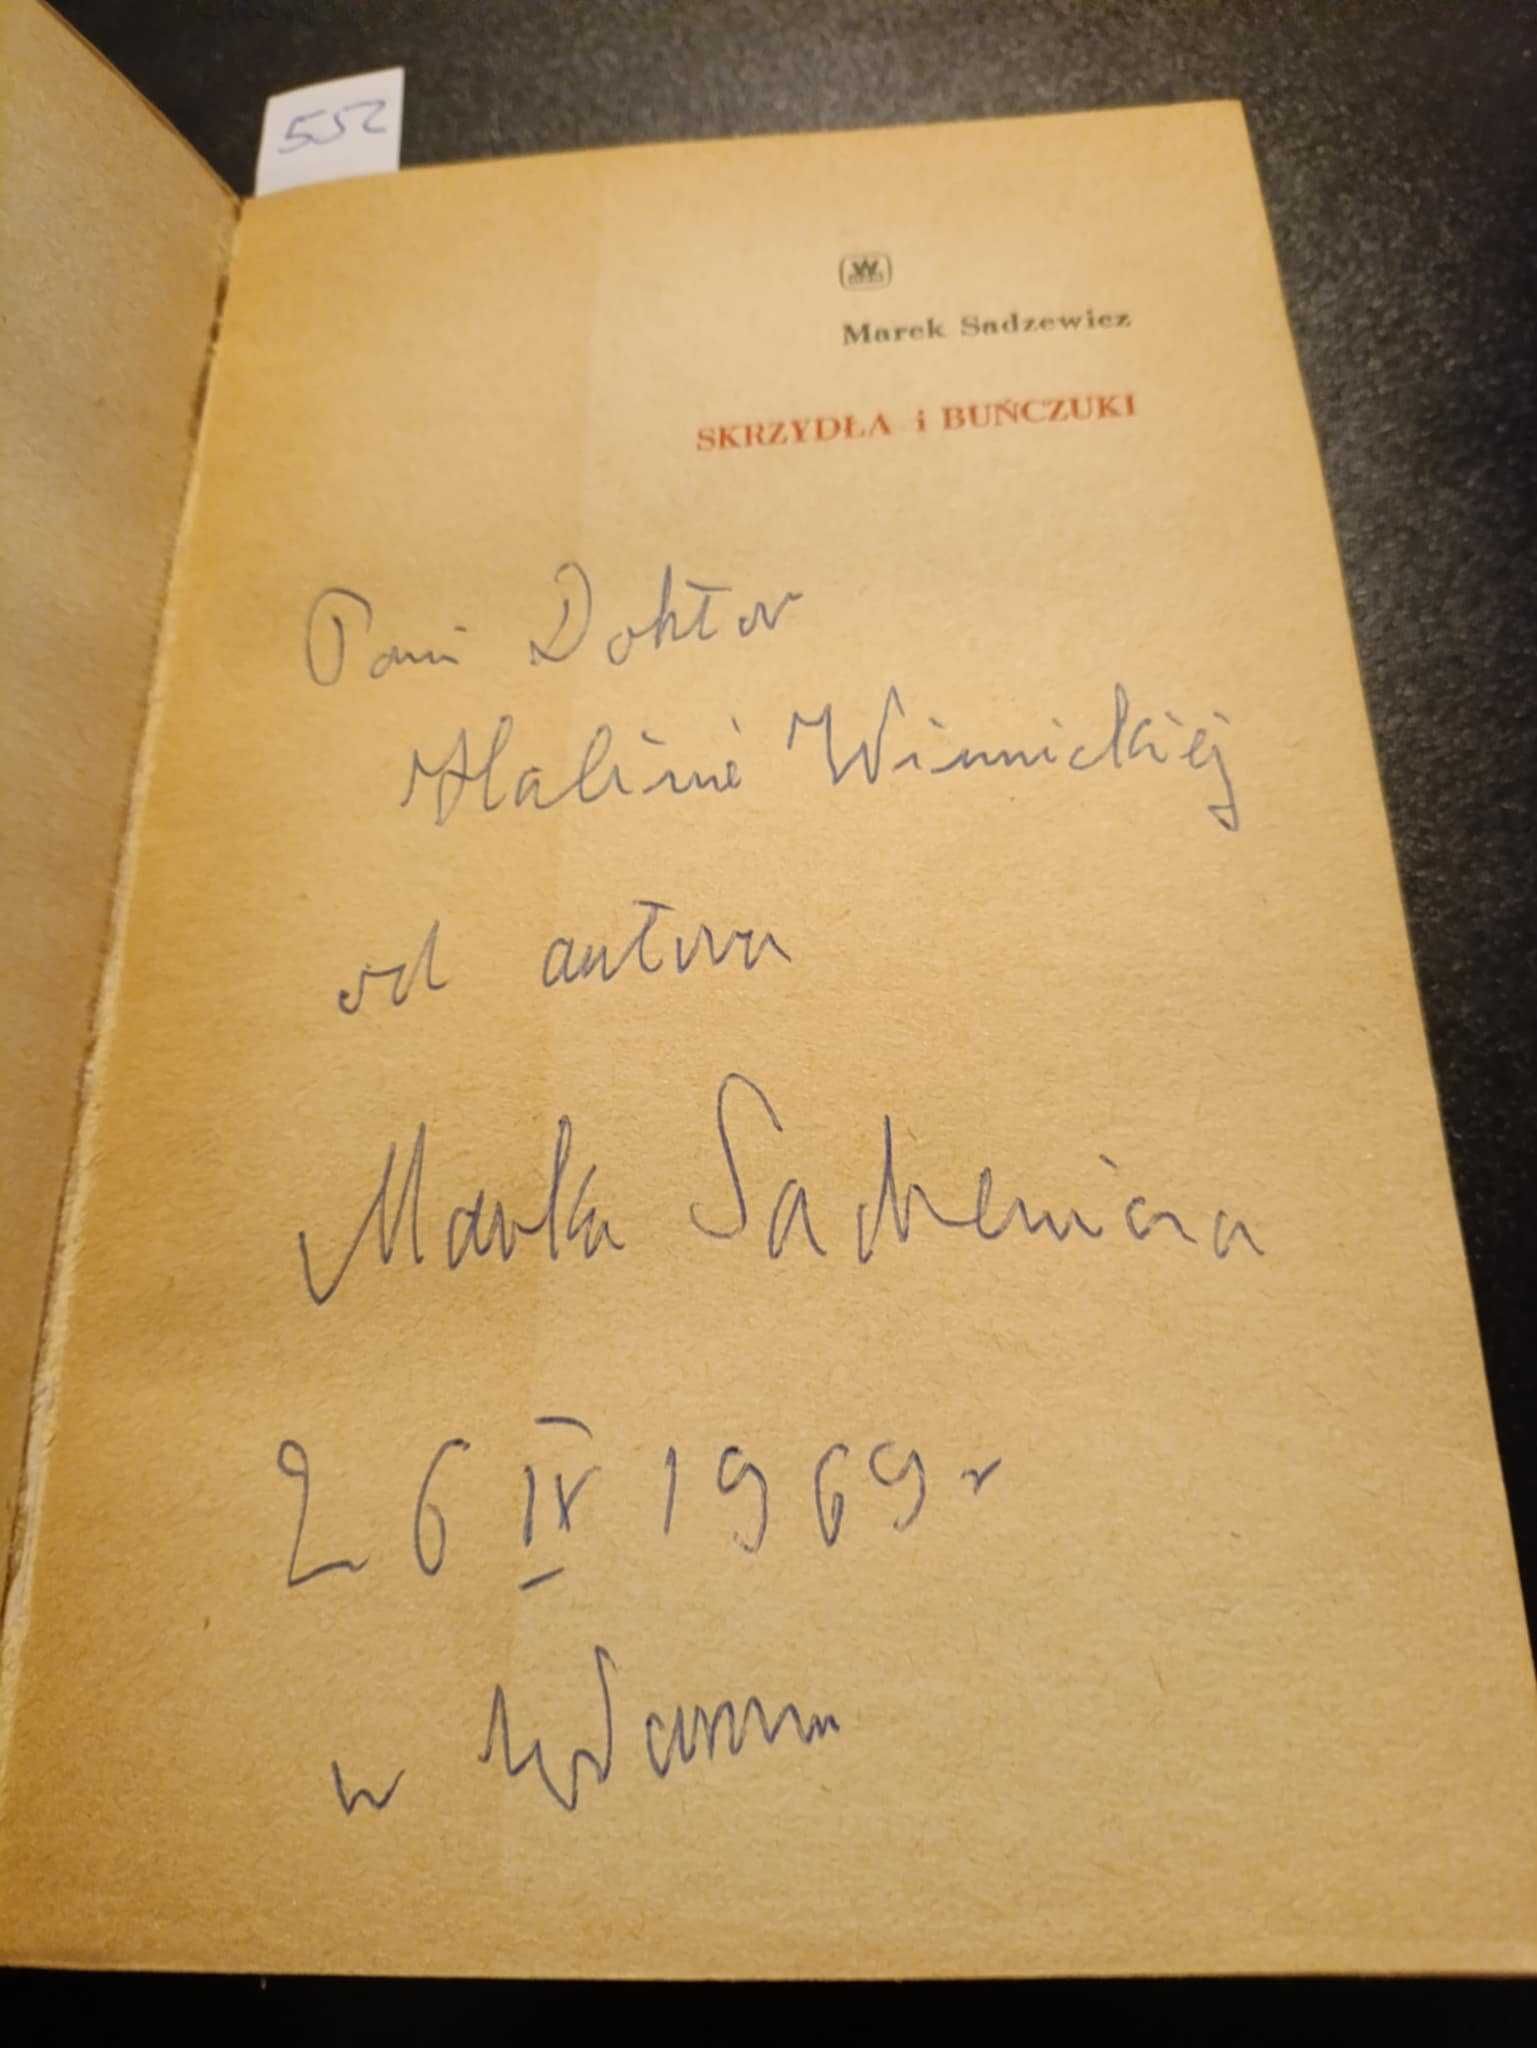 552
W
Marek Sadzewicz
SKRZYDŁA i BUŃCZUKI
Pani Doktor
Halinie Winnickiej
od autora
Marka Sadzewicza
26 IX 1969 r
w